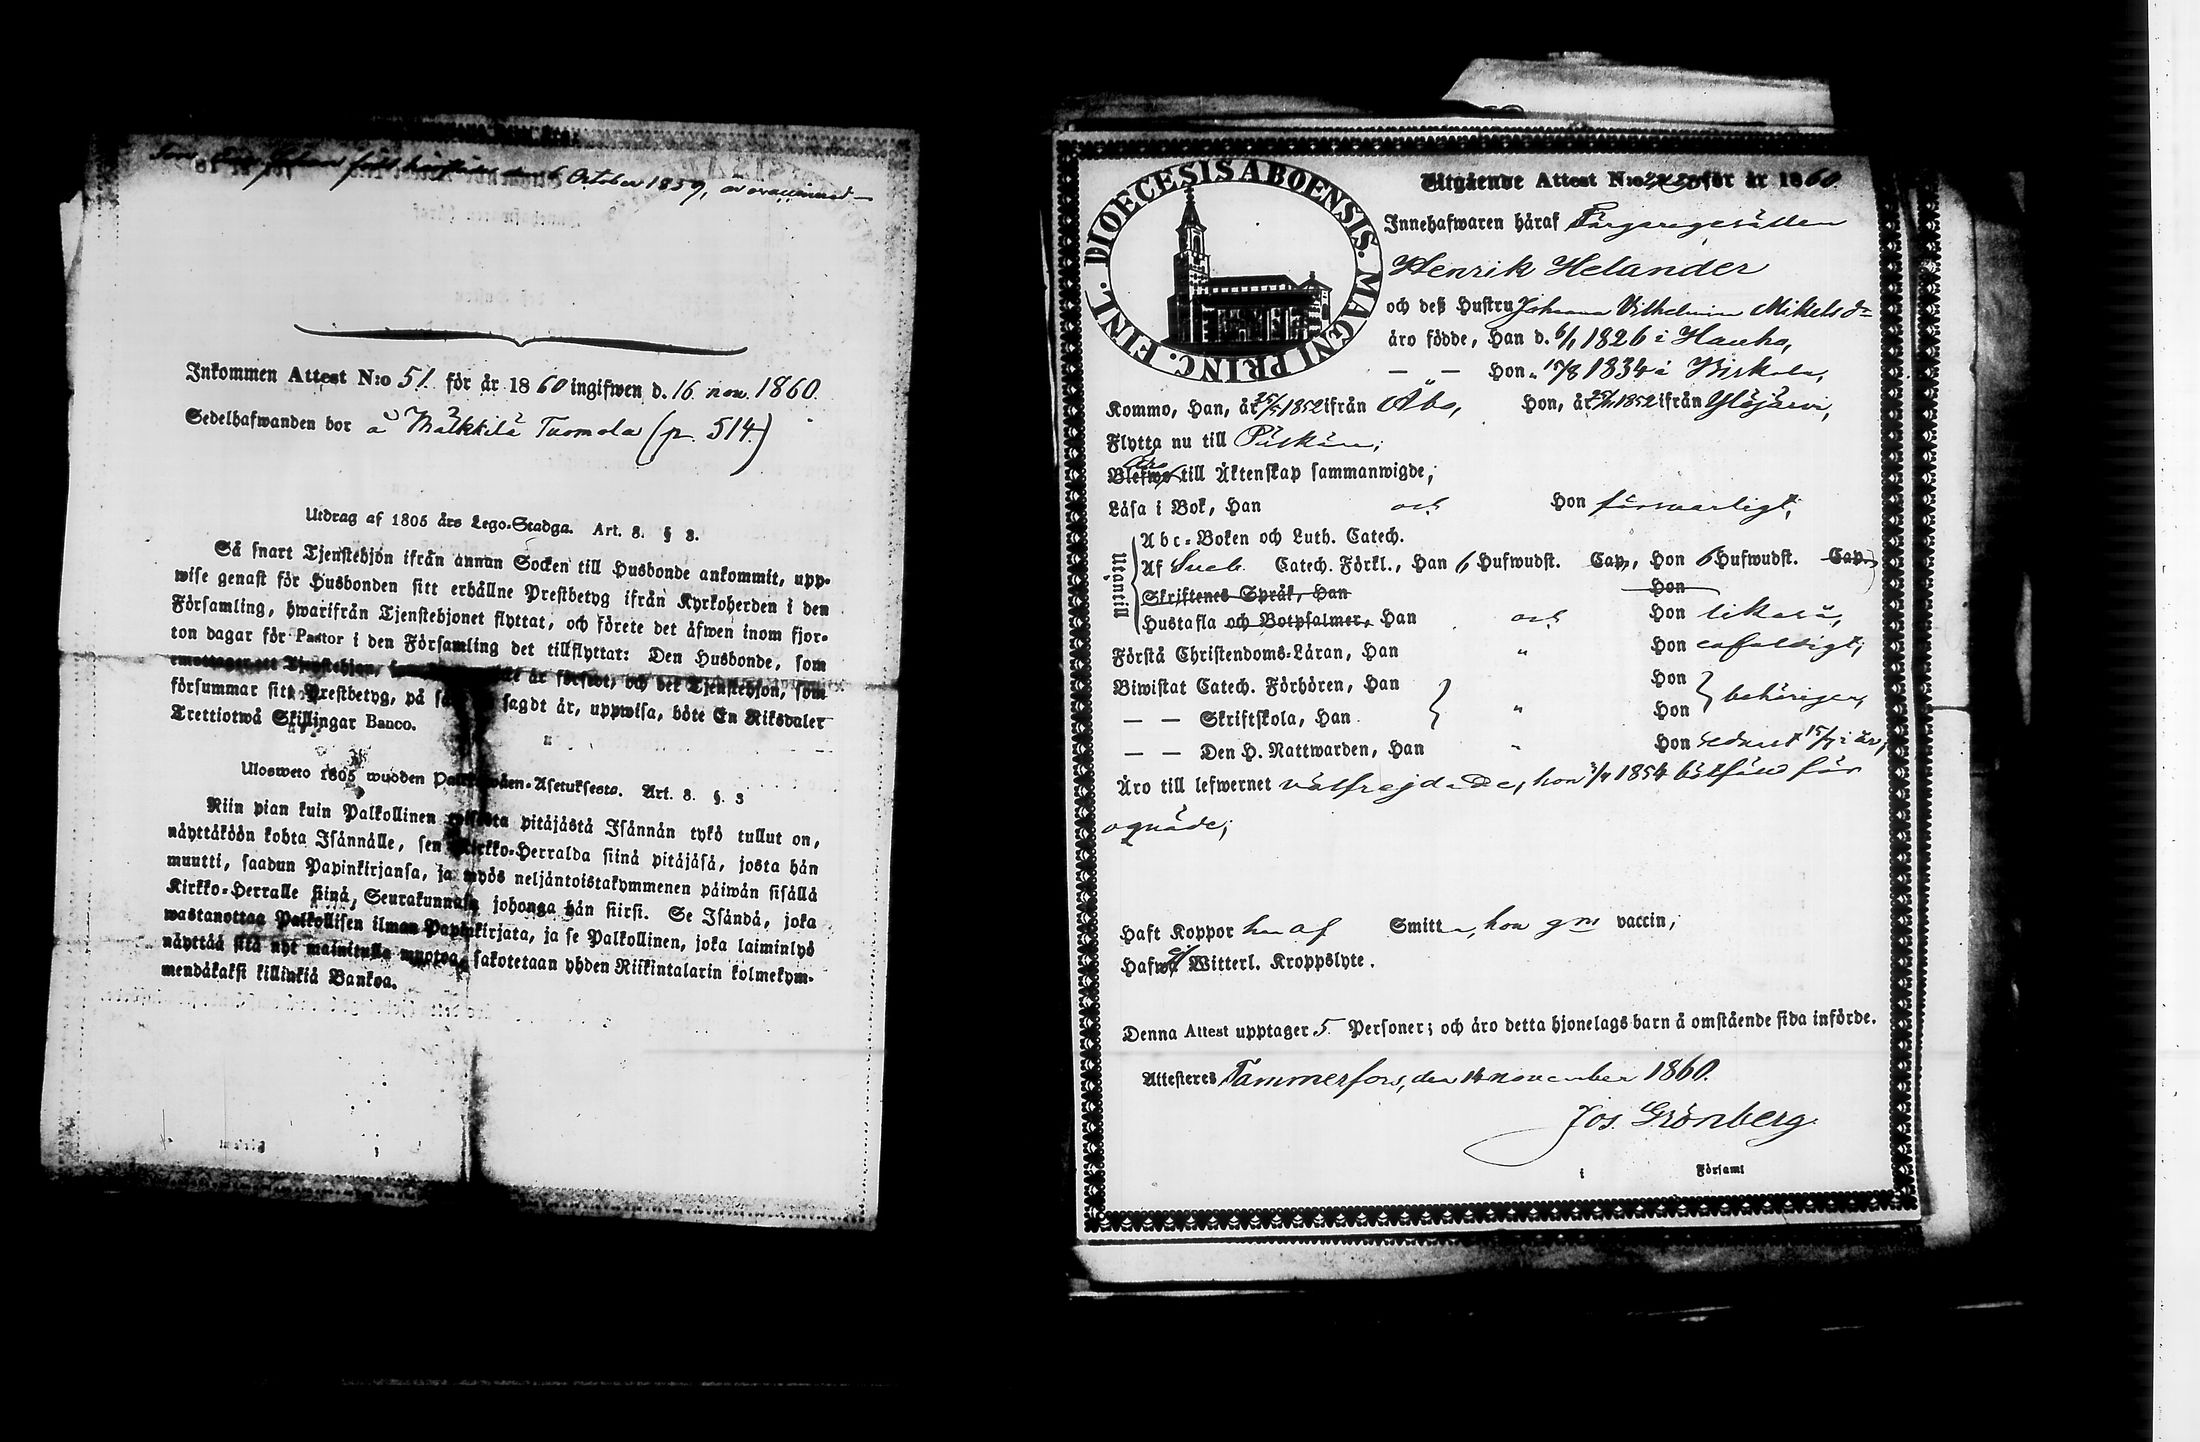 Johan född härstädes den 6 October 1859, är ovaccinerad
Inkommen Attest N:o 51 för år 1860 ingifwen d. 16 nov. 1860.
Sedelhafwanden bor å Mälkkilä Tuomola (p. 514.)
Utdrag af 1805 års Lego-Stadga. Art. 8. § 3.
Så snart Tjenstehjon ifrån annan Socken till Husbonde ankommit, upp-
wise genast för Husbonden sitt erhållne Prestbetyg ifrån Kyrkoherden i den
Församling, hwarifrån Tjenstehjonet flyttat, och förete det äfwen inom fjor-
ton dagar för Pastor i den Församling det tillflyttat: Den Husbonde, som
emottager ett Tjenstehjon, är försedt, och det Tjenstehjon, som
försummar sitt Prestbetyg, på sagdt är, uppwisa, böte En Riksdaler
Trettiotwå Skillingar Banco.
Ulosweto 1805 wuoden Asetuksesta. Art. 8. §. 3
Niin pian kuin Palkollinen toisesta pitäjästä Isännän tykö tullut on,
näyttäköön kohta Isännälle, sen Kirkko-Herralda siinä pitäjäsä, josta hän
muutti, saadun Papinkirjansa, ja myös neljäntoistakymmenen päiwän sisällä
Kirkko-Herralle siinä Seurakunnasa johonga hän siirsi. Se Isändä, joka
wastanottaa Palkollisen ilman Papinkirjata, ja se Palkollinen, joka laiminlyö
näyttää sitä nyt mainitulla muotoa, sakotetaan yhden Riikintalarin kolmekym-
mendäkaksi killinkiä Bankoa.
DIOECESIS ABOENSIS. MAGNI PRINC. FINL.
Utgående Attest N:o för år 1860.
Innehafwaren häraf Färgaregesällen
Henrik Helander
och deß Hustru Johanna Vilhelmina Mikelsd:r
äro födde, Han d. 6/1 1826 i Hauho,
— — Hon " 17/8 1834 i Birkala,
Kommo, Han, år 25/5 1852 ifrån Åbo, Hon, år 1852 ifrån Ylöjärvi,
Flytta nu till Pälkäne;
Blefwo äro till Äktenskap sammanwigde;
Läsa i Bok, Han och Hon försvarligt,
Utantill
Abc-Boken och Luth. Catech.
Af Sveb. Catech. Förkl., Han 6 Hufwudst. Cap, Hon 6 Hufwudst. Cap.
Skriftenes Språk, Han Hon
Hustafla och Botpsalmer, Han och Hon likaså,
Förstå Christendoms-Läran, Han " Hon enfaldigt,
Biwistat Catech. Förhören, Han Hon
— — Skriftskola, Han " Hon behörigen,
— — Den H. Nattwarden, Han " Hon sednast 15/7 i år,
Äro till lefwernet välfrejdade, hon 3/4 1854 bötfäld för
oqväde;
Haft Koppor han af Smitta, hon gm vaccin,
Hafwa ej Witterl. Kroppslyte.
Denna Attest upptager 5 Personer; och äro detta hjonelags barn å omstående sida införde.
Attesteres Tammerfors, den 14 november 1860.
Jos. Grönberg.
i Församl